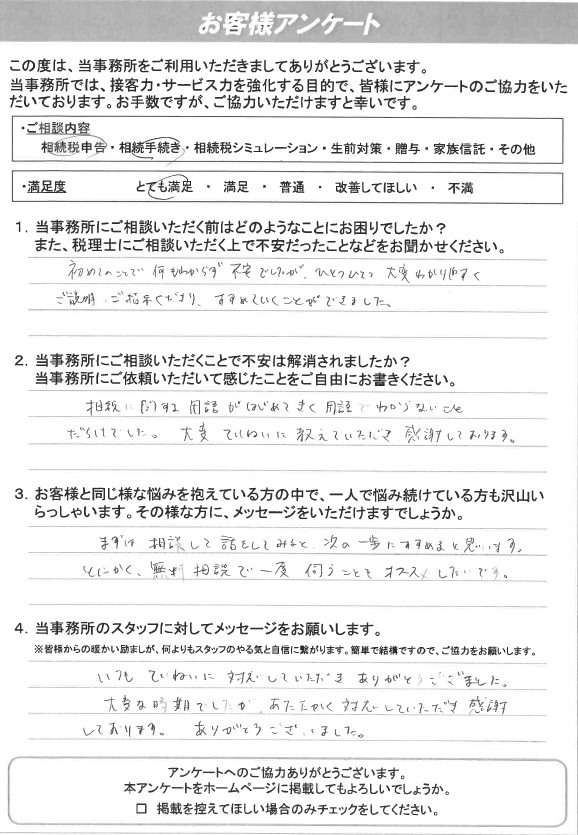 お客様アンケート
この度は、当事務所をご利用いただきましてありがとうございます。
当事務所では、接客力・サービス力を強化する目的で、皆様にアンケートのご協力をいた
だいております。お手数ですが、ご協力いただけますと幸いです。
・ご相談内容
相続税申告・相続手続き・相続税シミュレーション・生前対策・贈与・家族信託・その他
・満足度 とても満足 ・ 満足 ・ 普通 ・ 改善してほしい ・ 不満
1．当事務所にご相談いただく前はどのようなことにお困りでしたか？
また、税理士にご相談いただく上で不安だったことなどをお聞かせください。
初めてのことで 何もわからず 不安でしたが、ひとつひとつ 大変わかりやすく
ご説明、ご指示くださり、すすめていくことができました。
2．当事務所にご相談いただくことで不安は解消されましたか？
当事務所にご依頼いただいて感じたことをご自由にお書きください。
相続に関する 用語が はじめてきく 用語で わからないこと
だらけでした。 大変 ていねいに 教えていただき 感謝しております。
3．お客様と同じ様な悩みを抱えている方の中で、一人で悩み続けている方も沢山い
らっしゃいます。その様な方に、メッセージをいただけますでしょうか。
まずは 相談して 話をしてみると、次の一歩にすすめると思います。
とにかく、無料相談で一度 伺うことをオススメしたいです。
4．当事務所のスタッフに対してメッセージをお願いします。
※皆様からの暖かい励ましが、何よりもスタッフのやる気と自信に繋がります。簡単で結構ですので、ご協力をお願いします。
いつも ていねいに 対応していただき ありがとうございました。
大変な時期でしたが、あたたかく 対応していただき 感謝
しております。 ありがとうございました。
アンケートへのご協力ありがとうございます。
本アンケートをホームページに掲載してもよろしいでしょうか。
□ 掲載を控えてほしい場合のみチェックをしてください。